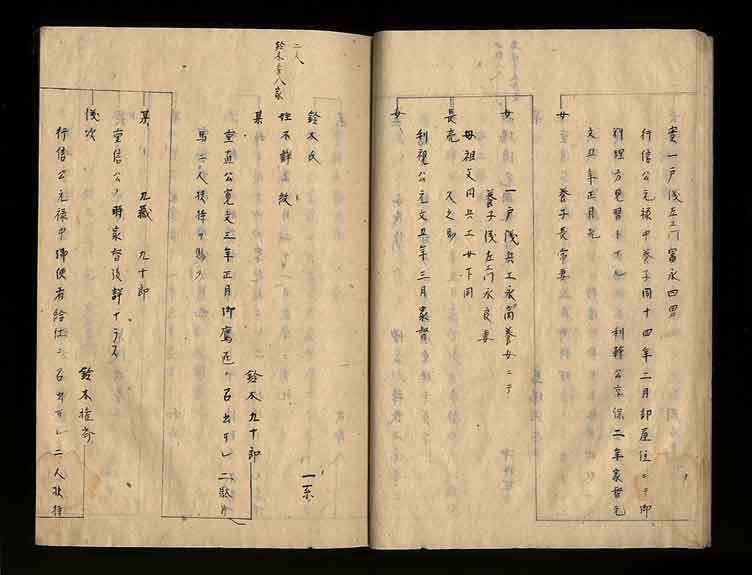 実一戸浅左エ門富永四男
行信公元禄中養子同十四年二月部屋住ニテ御
料理方見習
利幹公享保二年家督
元文五年正月死
女 養子長常妻
女 一戸浅兵エ永商養女ニテ
養子浅左エ門永良妻
母祖父同兵エ女下同
長亮 久之助
利視公元文五年三月家督
女
二人
鈴木李八家
鈴木氏 一系
姓不詳 紋
某 鈴木九十郎
重直公寛文三年正月御鷹匠
被召出
二駄片
馬二人扶持ヲ賜フ
某 九蔵 九十郎
重信公ノ時家督後詳ナラス
儀次 鈴木権
行信公元禄中御使者給仕ニ
召出
二人扶持